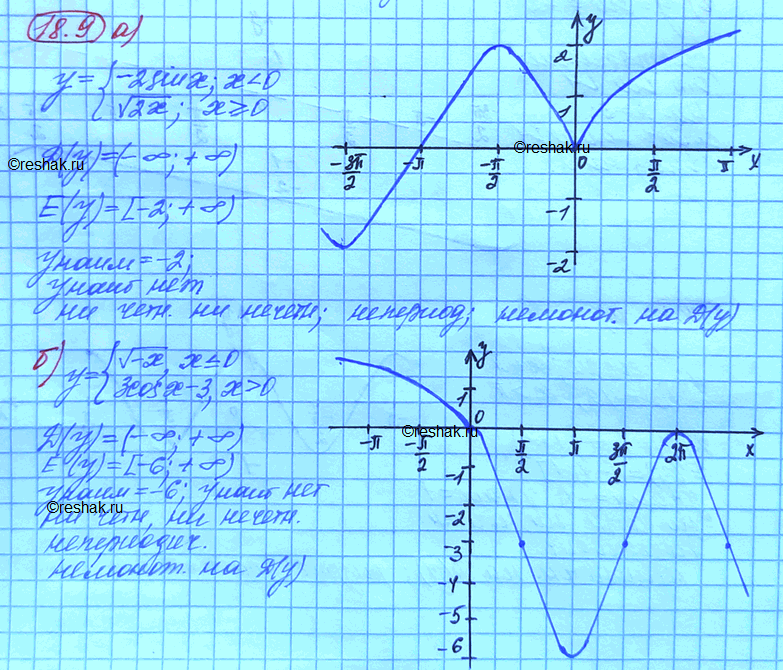 18.9 а)
y = { -2sinx; x<0
{ √2x; x≥0
D(y)=(-∞; +∞)
©reshak.ru
E(y)=[-2; +∞)
yнаим=-2;
yнаиб нет
ни четн. ни нечетн; непериод; немонот. на D(y)
y
2
1
©reshak.ru
-3π/2 -π -π/2 0 π/2 π x
-1
-2
б) y= { √-x, x≤0
{ 3cosx-3, x>0
D(y)=(-∞; +∞)
E(y)=[-6; +∞)
yнаим=-6; yнаиб нет
©reshak.ru
ни четн, ни нечетн.
непериодич.
немонот. на D(y)
y
1
0
©reshak.ru
-π -π/2 π/2 π 3π/2 2π x
-1
-2
-3
-4
-5
-6